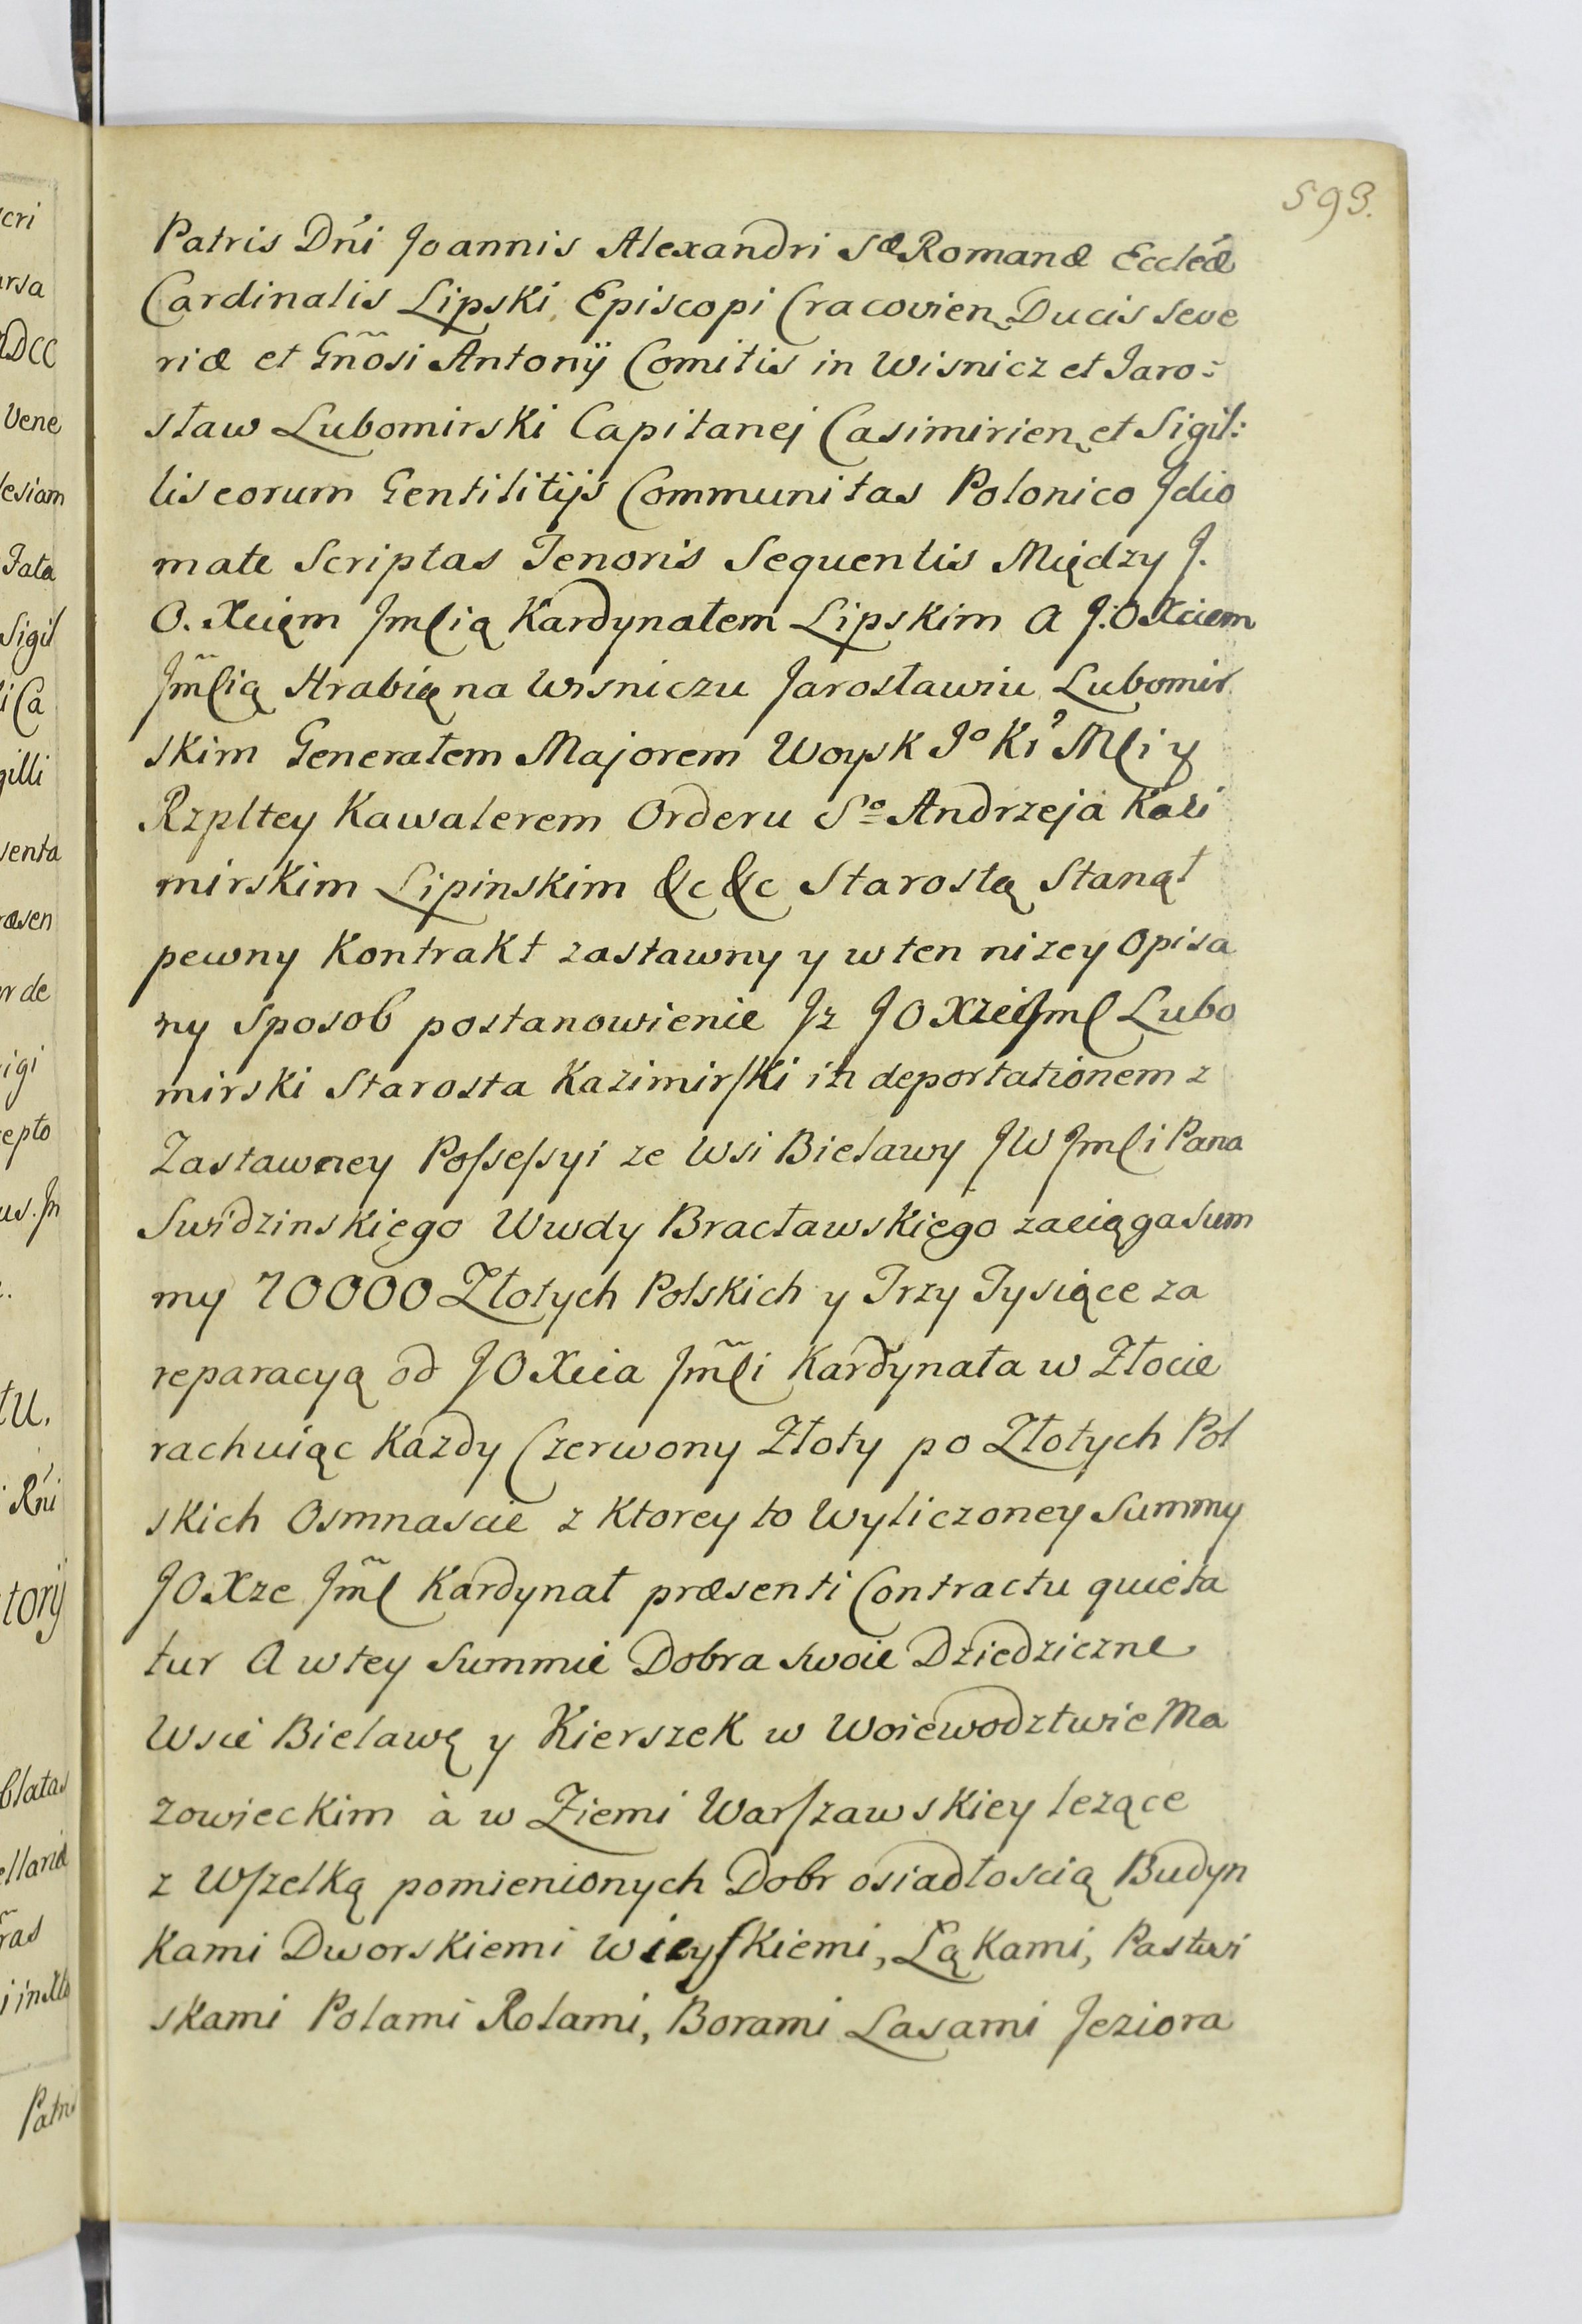 593.
Patris Dńi Joannis Alexandri Sæ Romanæ Eccleæ
Cardinalis Lipski, Episcopi Cracovien Ducis Seve
riæ et Gñosi Antonij Comitis in Wisnicz et Jaro=
sław Lubomirski Capitanej Casimirien et Sigil:
lis eorum Gentilitijs Communitas Polonico Jdio
mate Scriptas Tenoris Sequentis Między J.
O. Xcięm Jmścią Kardynałem Lipskim A J.O Xciem
Jm̃ścią Hrabią na Wisniczu Jarosławiu Lubomir
skim Generałem Majorem Woysk Jo Kr Mści y
Rzpltey Kawalerem Orderu So Andrzeja Kazi
mirskim Lipinskim &c &c Starostą Stanął
pewny Kontrakt zastawny y w ten nizey Opisa
ny Sposob postanowienie Jz JO Xże Jmść Lubo
mirski Starosta Kazimirski in deportationem z
Zastawney Possessyi ze Wsi Bielawy JW Jmści Pana
Swidzinskiego Wwdy Bracławskiego zaciąga Sum
my 70000 Złotych Polskich y Trzy Tysiące za
reparacyą od JO Xcia Jm̃ści Kardynała w Złocie
rachuiąc Kazdy Czerwony Złoty po Złotych Pol
skich Osmnascie z Ktorey to Wyliczoney Summy
JO Xze Jm̃ść Kardynał præsenti Contractu quieta
tur A w tey Summie Dobra swoie Dziedziczne
Wsie Bielawę y Kierszek w Woiewodztwie Ma
zowieckim à w Ziemi Warszawskiey lezące
z Wszelką pomienionych Dobr osiadłoscią Budyn
kami Dworskiemi Wieyskiemi, Łąkami, Pastwi
skami Polami Rolami, Borami Lasami Jeziora